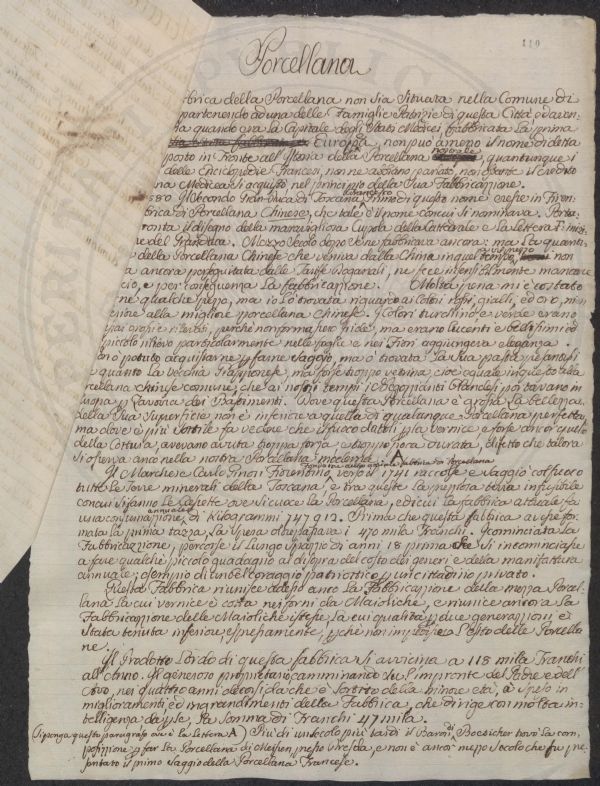 110
Porcellana
brica della Porcellana non sia situata nella Comune di
partenendo ad una delle Famiglie Patrizie di questa Città ed aven-
na quando era la Capitale degli Stati Medicei fabbricata la prima
Europea, non può a meno il nome di detta
posto in Fronte all'Istoria della Porcellana quantunque i
delle Enciclopedie Francesi, non ne abbiano parlato, non ostante il credito
na Medicea si acquistò nel principio della sua Fabbricazione.
580 Il Secondo Gran-Duca di Toscana Francesco Primo di questo nome eresse in Firen-
brica di Porcellana Chinese, che tale è il nome con cui si nominava. Porta-
ronta il disegno della maravigliosa Cupola della Cattedrale e la Lettera F inizi-
me del Granduca. Mezzo Secolo dopo se ne fabbricava ancora: ma la quanti-
della Porcellana Chinese che veniva dalla China in quel tempo, non
a ancora perseguitata dalle Tariffe Doganali, ne fece insensibilmente mancare
cio, e per conseguenza la fabbricazione. Molta pena mi è costato
ne qualche pezzo, ma io l'ò trovata riguardo ai Colori rossi, gialli, ed oro, in
riore alla migliore porcellana chinese. I Colori turchino e verde erano
grossi e rilevati, perchè non forma loro nide, ma erano lucenti e bellissimi ed
piccolo rilievo particolarmente nelle foglie e nei Fiori aggiungeva eleganza.
on ò potuto acquistarne per farne saggio, ma ò trovata la sua pasta pesante si
e quanto la vecchia Giapponese, ma forse troppo vetrina, cioè eguale in questo alla
rcellana chinese comune, che ai nostri tempi i Negozianti Olandesi portavano in
uropa per Zavorra dei Bastimenti. Dove questa Porcellana è grossa la bellezza
della sua superficie non è inferiore a quella di qualunque Porcellana perfetta,
ma dove è più sottile fa vedere che il fuoco dato per la vernice e forse ancor questo
della Cottura, avevano avuta troppa forza e troppo fiera durata, difetto che talora
si osserva anco nella nostra Porcellana moderna. A
Il Marchese Carlo Ginori Fiorentino, verso il 1741 raccolse e saggiò col fuoco
tutte le Terre minerali della Toscana, e tra queste la preziosa terra infusibile
con cui si fanno le Casette ove si cuoce la Porcellana, e di cui la fabbrica attuale fa
una consumazione annuale di Kilogrammi 747912. Prima che questa fabbrica avesse for-
mata la prima tazza la spesa oltrepassava i 470 mila Franchi. Incominciata la
Fabbricazione, percorse il lungo spazio di anni 18 prima che si incominciasse
a fare qualche piccolo guadagno al di sopra del costo dei generi e della manifattura
annuale; esempio di un bel coraggio patriottico per un cittadino privato.
Questa Fabbrica riunisce adesso anco la Fabbricazione della mezza Porcel-
lana la cui vernice è cotta nei forni da Maioliche, e riunisce ancora la
Fabbricazione delle Maioliche istesse, la cui qualità per due generazioni è
stata tenuta inferiore espressamente, perchè non impedisse l'esito delle Porcella-
ne.
Il Prodotto Lordo di questa fabbrica si avvicina a 118 mila Franchi
all'anno. Il generoso proprietario, camminando su l'impronte del Padre e dell'
Avo, nei quattro anni decorsi da che è sortito della minore età, à speso in
miglioramenti ed ingrandimenti della Fabbrica, che dirige con molta in-
telligenza da per se, la somma di Franchi 47 mila.
(Si ponga questo paragrafo ove è la Lettera A) Più di un Secolo più tardi il Barone di Boeticher trovò la com-
posizione per far la Porcellana di Meissen, presso Dresda, e non è ancor mezzo secolo che fu pre-
sentato il primo saggio della Porcellana Francese.